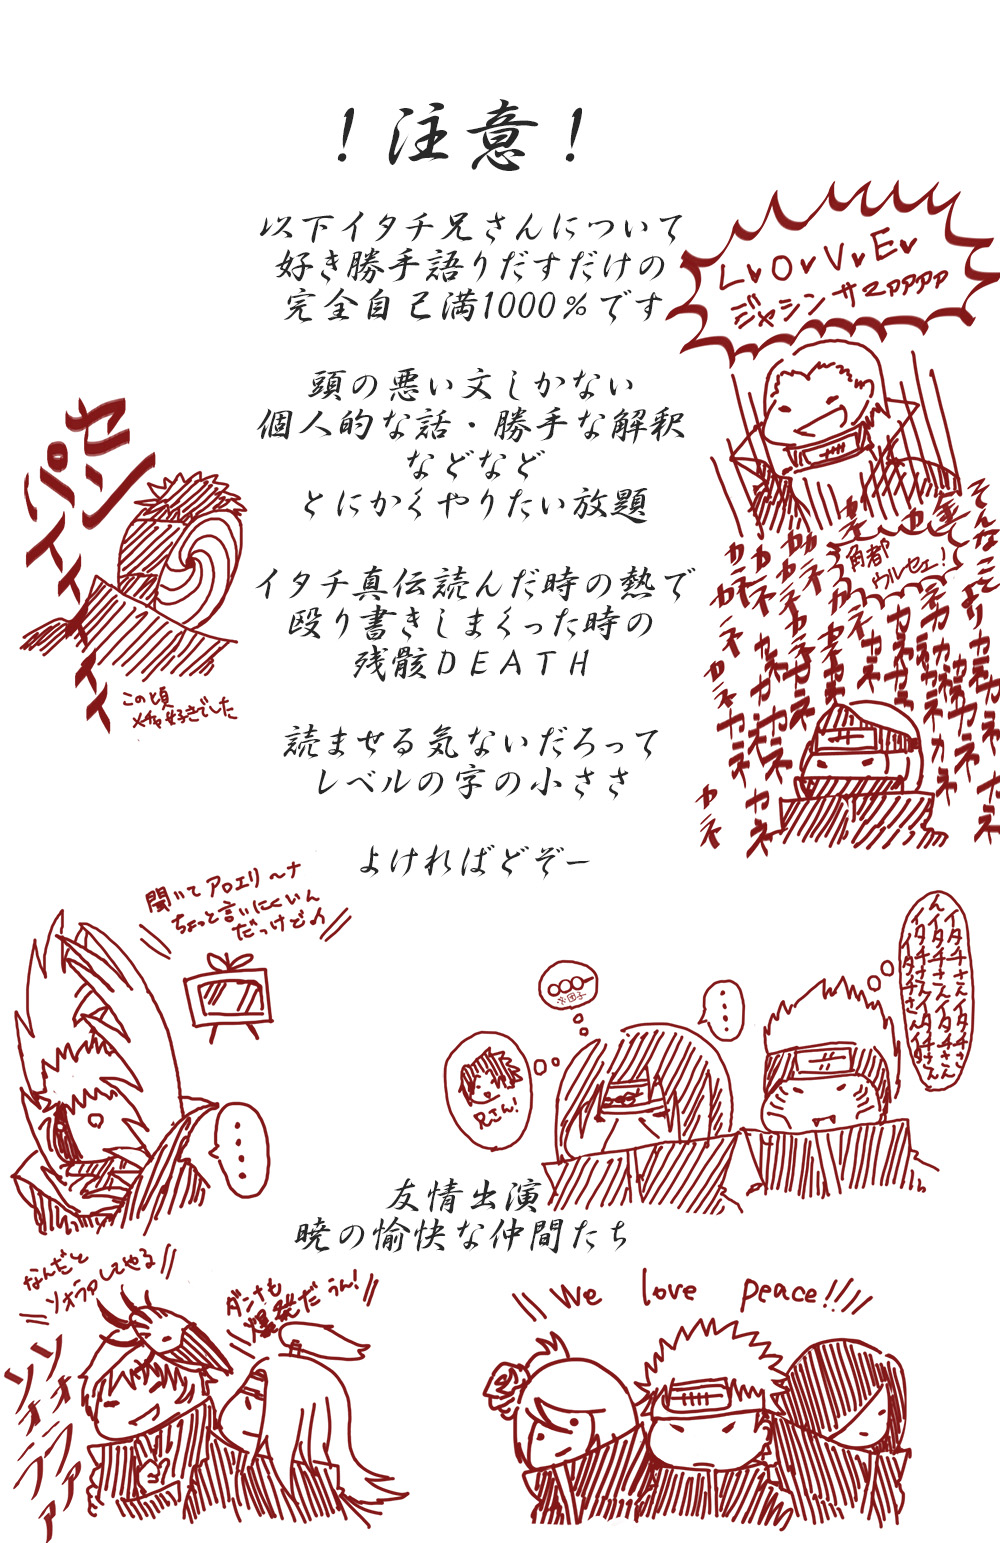 ！注意！
以下イタチ兄さんについて
好き勝手語りだすだけの
完全自己満1000％です
頭の悪い文しかない
個人的な話・勝手な解釈
などなど
とにかくやりたい放題
イタチ真伝読んだ時の熱で
殴り書きしまくった時の
残骸DEATH
読ませる気ないだろって
レベルの字の小ささ
よければどぞー
L♥O♥V♥E♥
ジャシンサマアアアア
そんなことより
金
角都ゃ
ウルセェ！
カネカネカネカネ
センパイィィィィ
この頃
メチャ好きでした
聞いてアロエリ〜ナ
ちょっと言いにくいん
だっけどの
・・・・
兄さん！
※団子
・・・
イタチさんイタチさん
イタチさんイタチさん
イタチさんイタチさん
友情出演
暁の愉快な仲間たち
なんだと
ソォラァしてやる
ソォラァァ
ソォラァァ
ダンナも
爆発だ うん！
We love peace!!